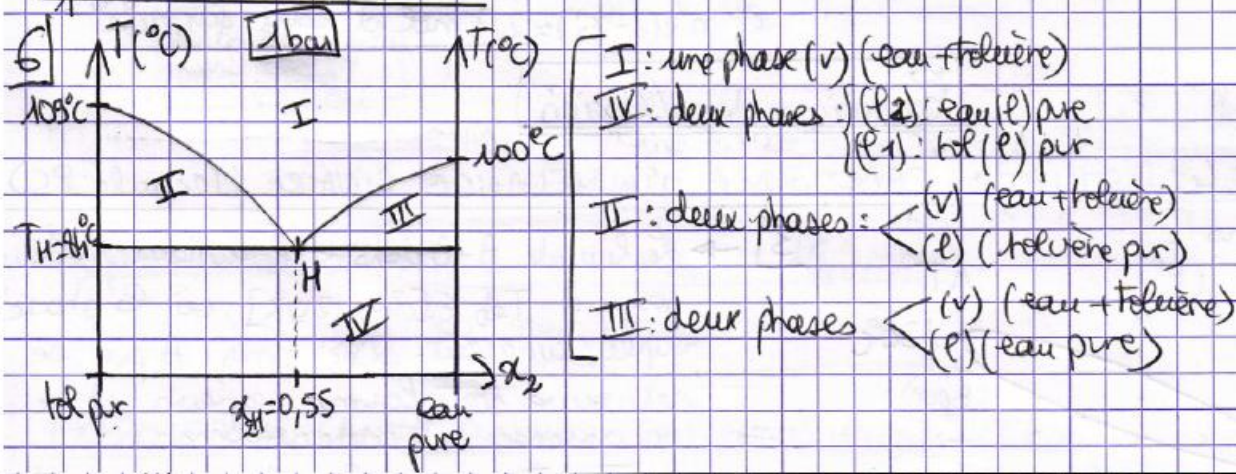 6] T(°C) 1 bar T(°C)
109°C
100°C
I
II
III
IV
TH=84°C
H
x2
tol pur xH=0,55 eau pure
I : une phase (v) (eau + toluène)
IV : deux phases : (l2) : eau (l) pure
(l1) : tol (l) pur
II : deux phases : (v) (eau + toluène)
(l) (toluène pur)
III : deux phases (v) (eau + toluène)
(l) (eau pure)